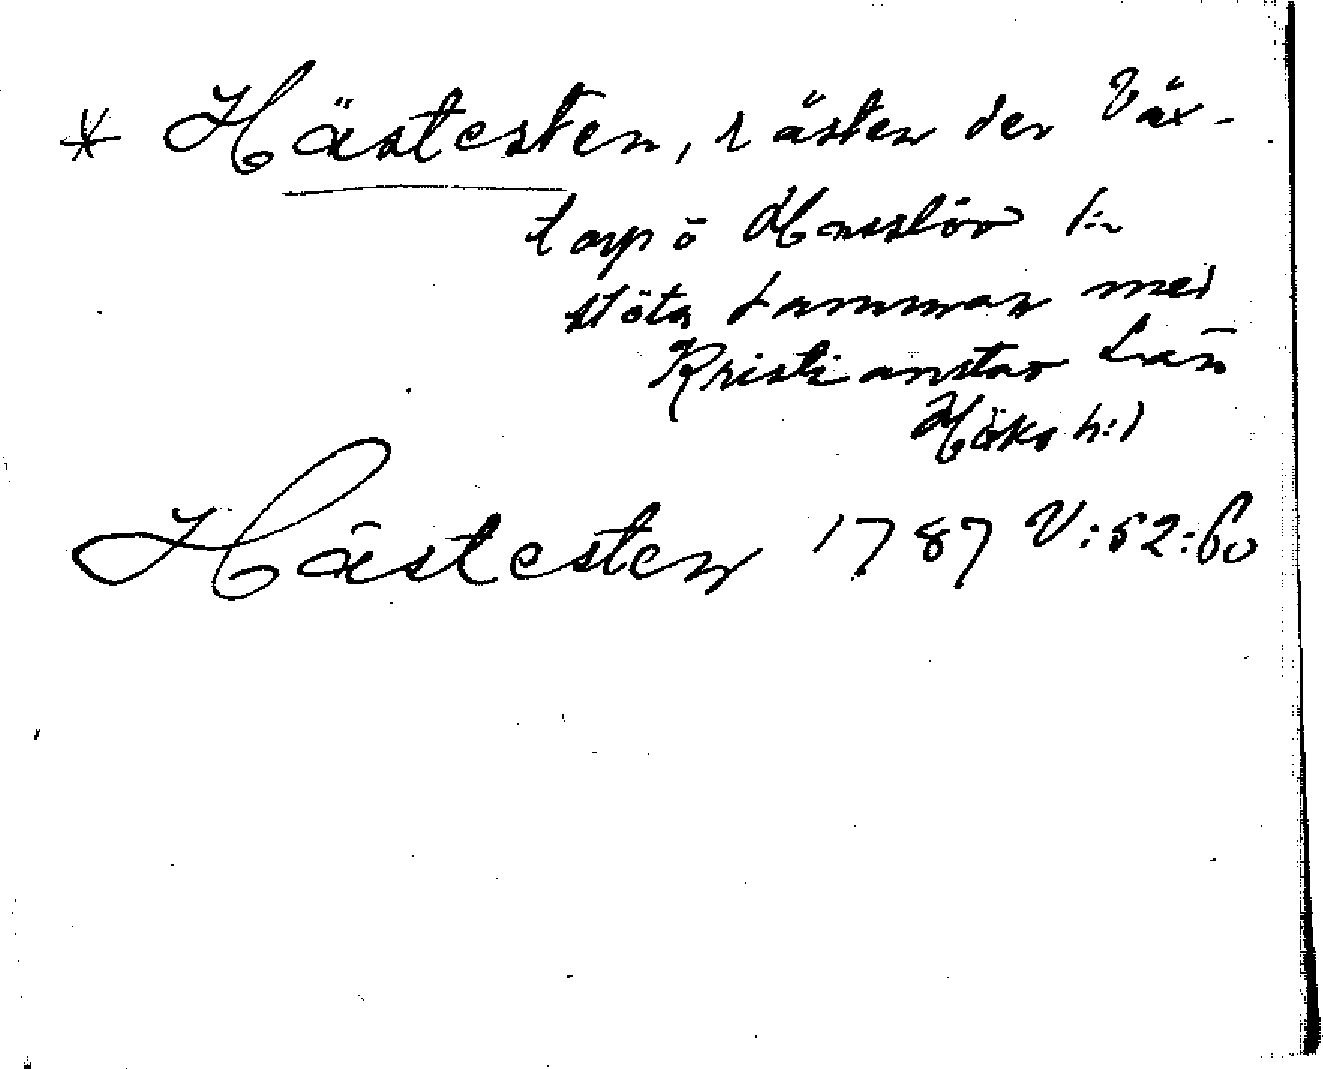 * Hästesten, rästen der Väx-
torp ö Hasslöv sn
stöta samman med
Kristianstad Län
Höks h:d
Hästesten 1787 V:52:60